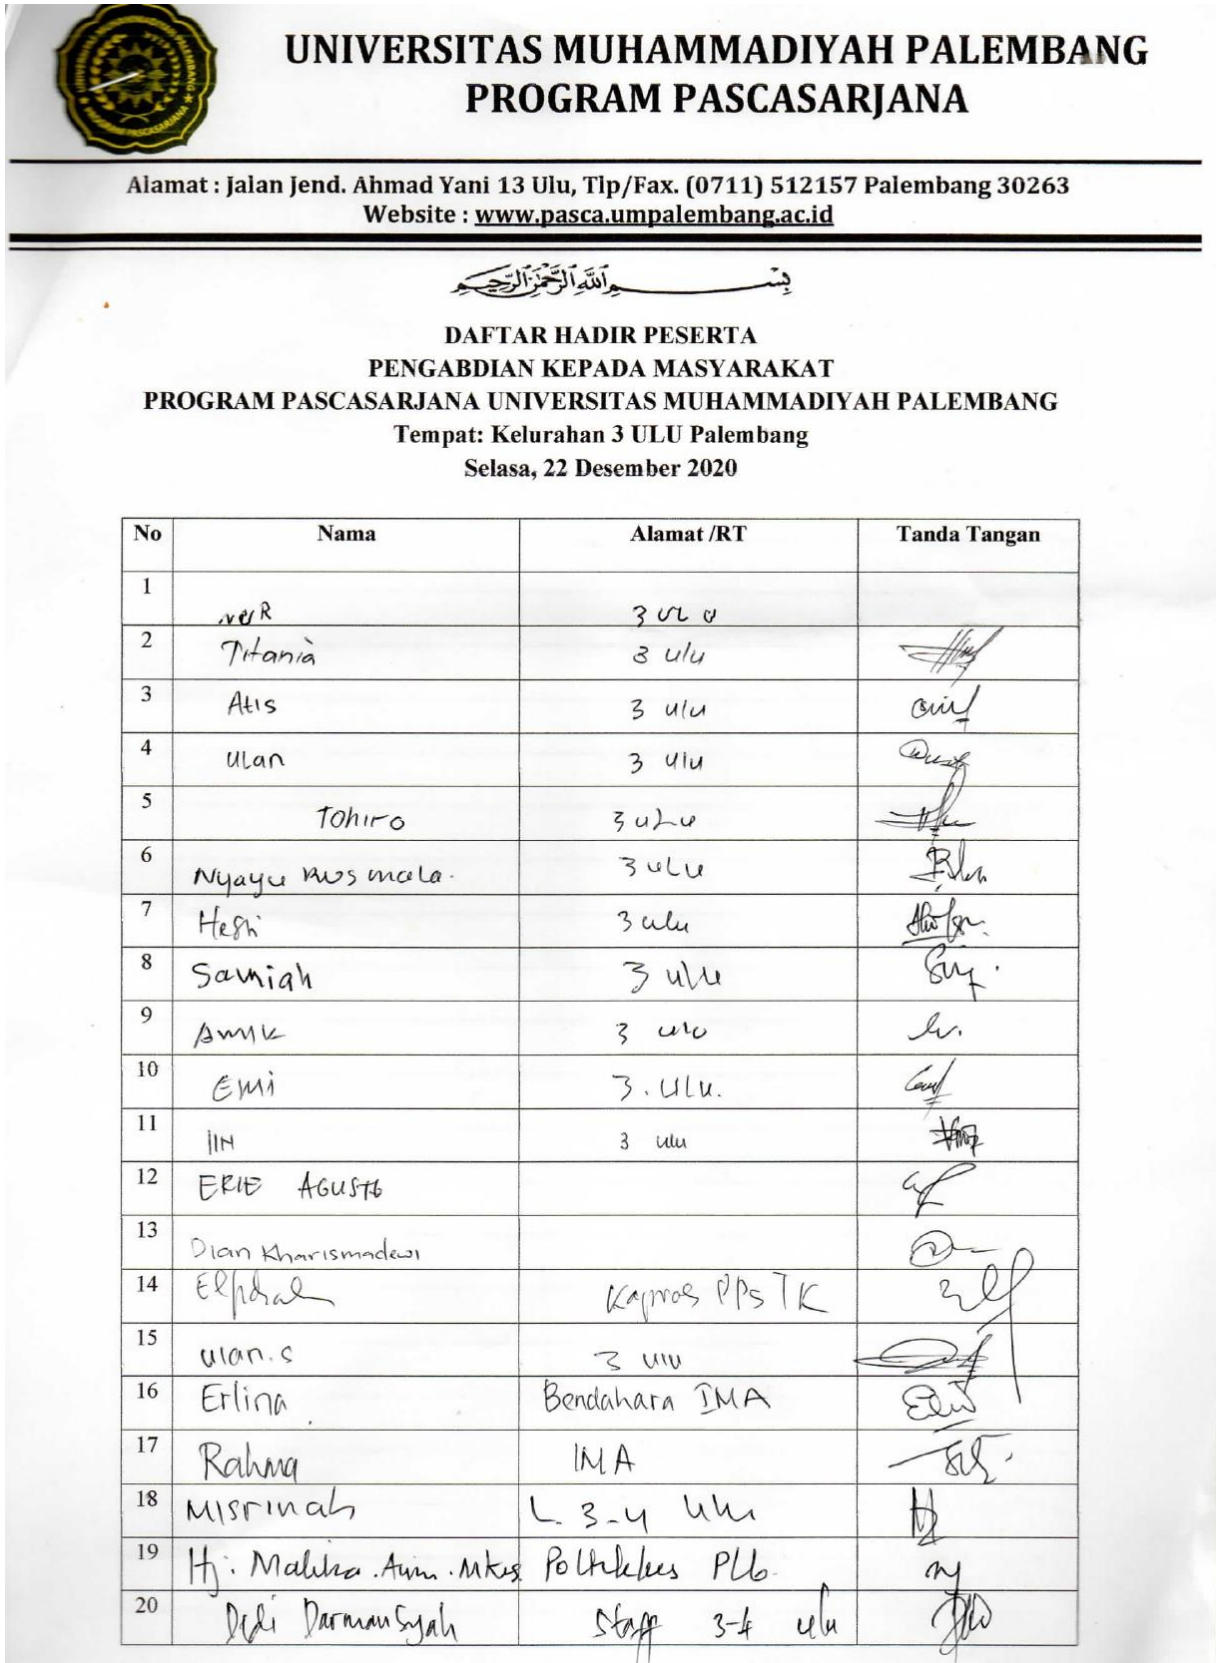 UNIVERSITAS MUHAMMADIYAH PALEMBANG
PROGRAM PASCASARJANA
Alamat : Jalan Jend. Ahmad Yani 13 Ulu, Tlp/Fax. (0711) 512157 Palembang 30263
Website : www.pasca.umpalembang.ac.id
بِسْمِ اللَّهِ الرَّحْمَٰنِ الرَّحِيمِ
DAFTAR HADIR PESERTA
PENGABDIAN KEPADA MASYARAKAT
PROGRAM PASCASARJANA UNIVERSITAS MUHAMMADIYAH PALEMBANG
Tempat: Kelurahan 3 ULU Palembang
Selasa, 22 Desember 2020
No Nama Alamat /RT Tanda Tangan
1 3 ULU
2 Titania 3 ulu
3 Atis 3 ulu
4 ulan 3 ulu
5 Tohiro 3 ulu
6 Nyayu kusmala. 3 ulu
7 3 ulu
8 Samiah 3 ulu
9 3 ulu
10 EMi 3. ULU.
11 IIN 3 ulu
12 ERIE
13 Dian Kharismadewi
14 PPs TK
15 ulan.s 3 ulu
16 Erlina Bendahara IMA
17 Rahma IMA
18 Misrinah L 3-4 Ulu
19 Hj. Malika Plb.
20 Dedi Darmansyah Staff 3-4 ulu